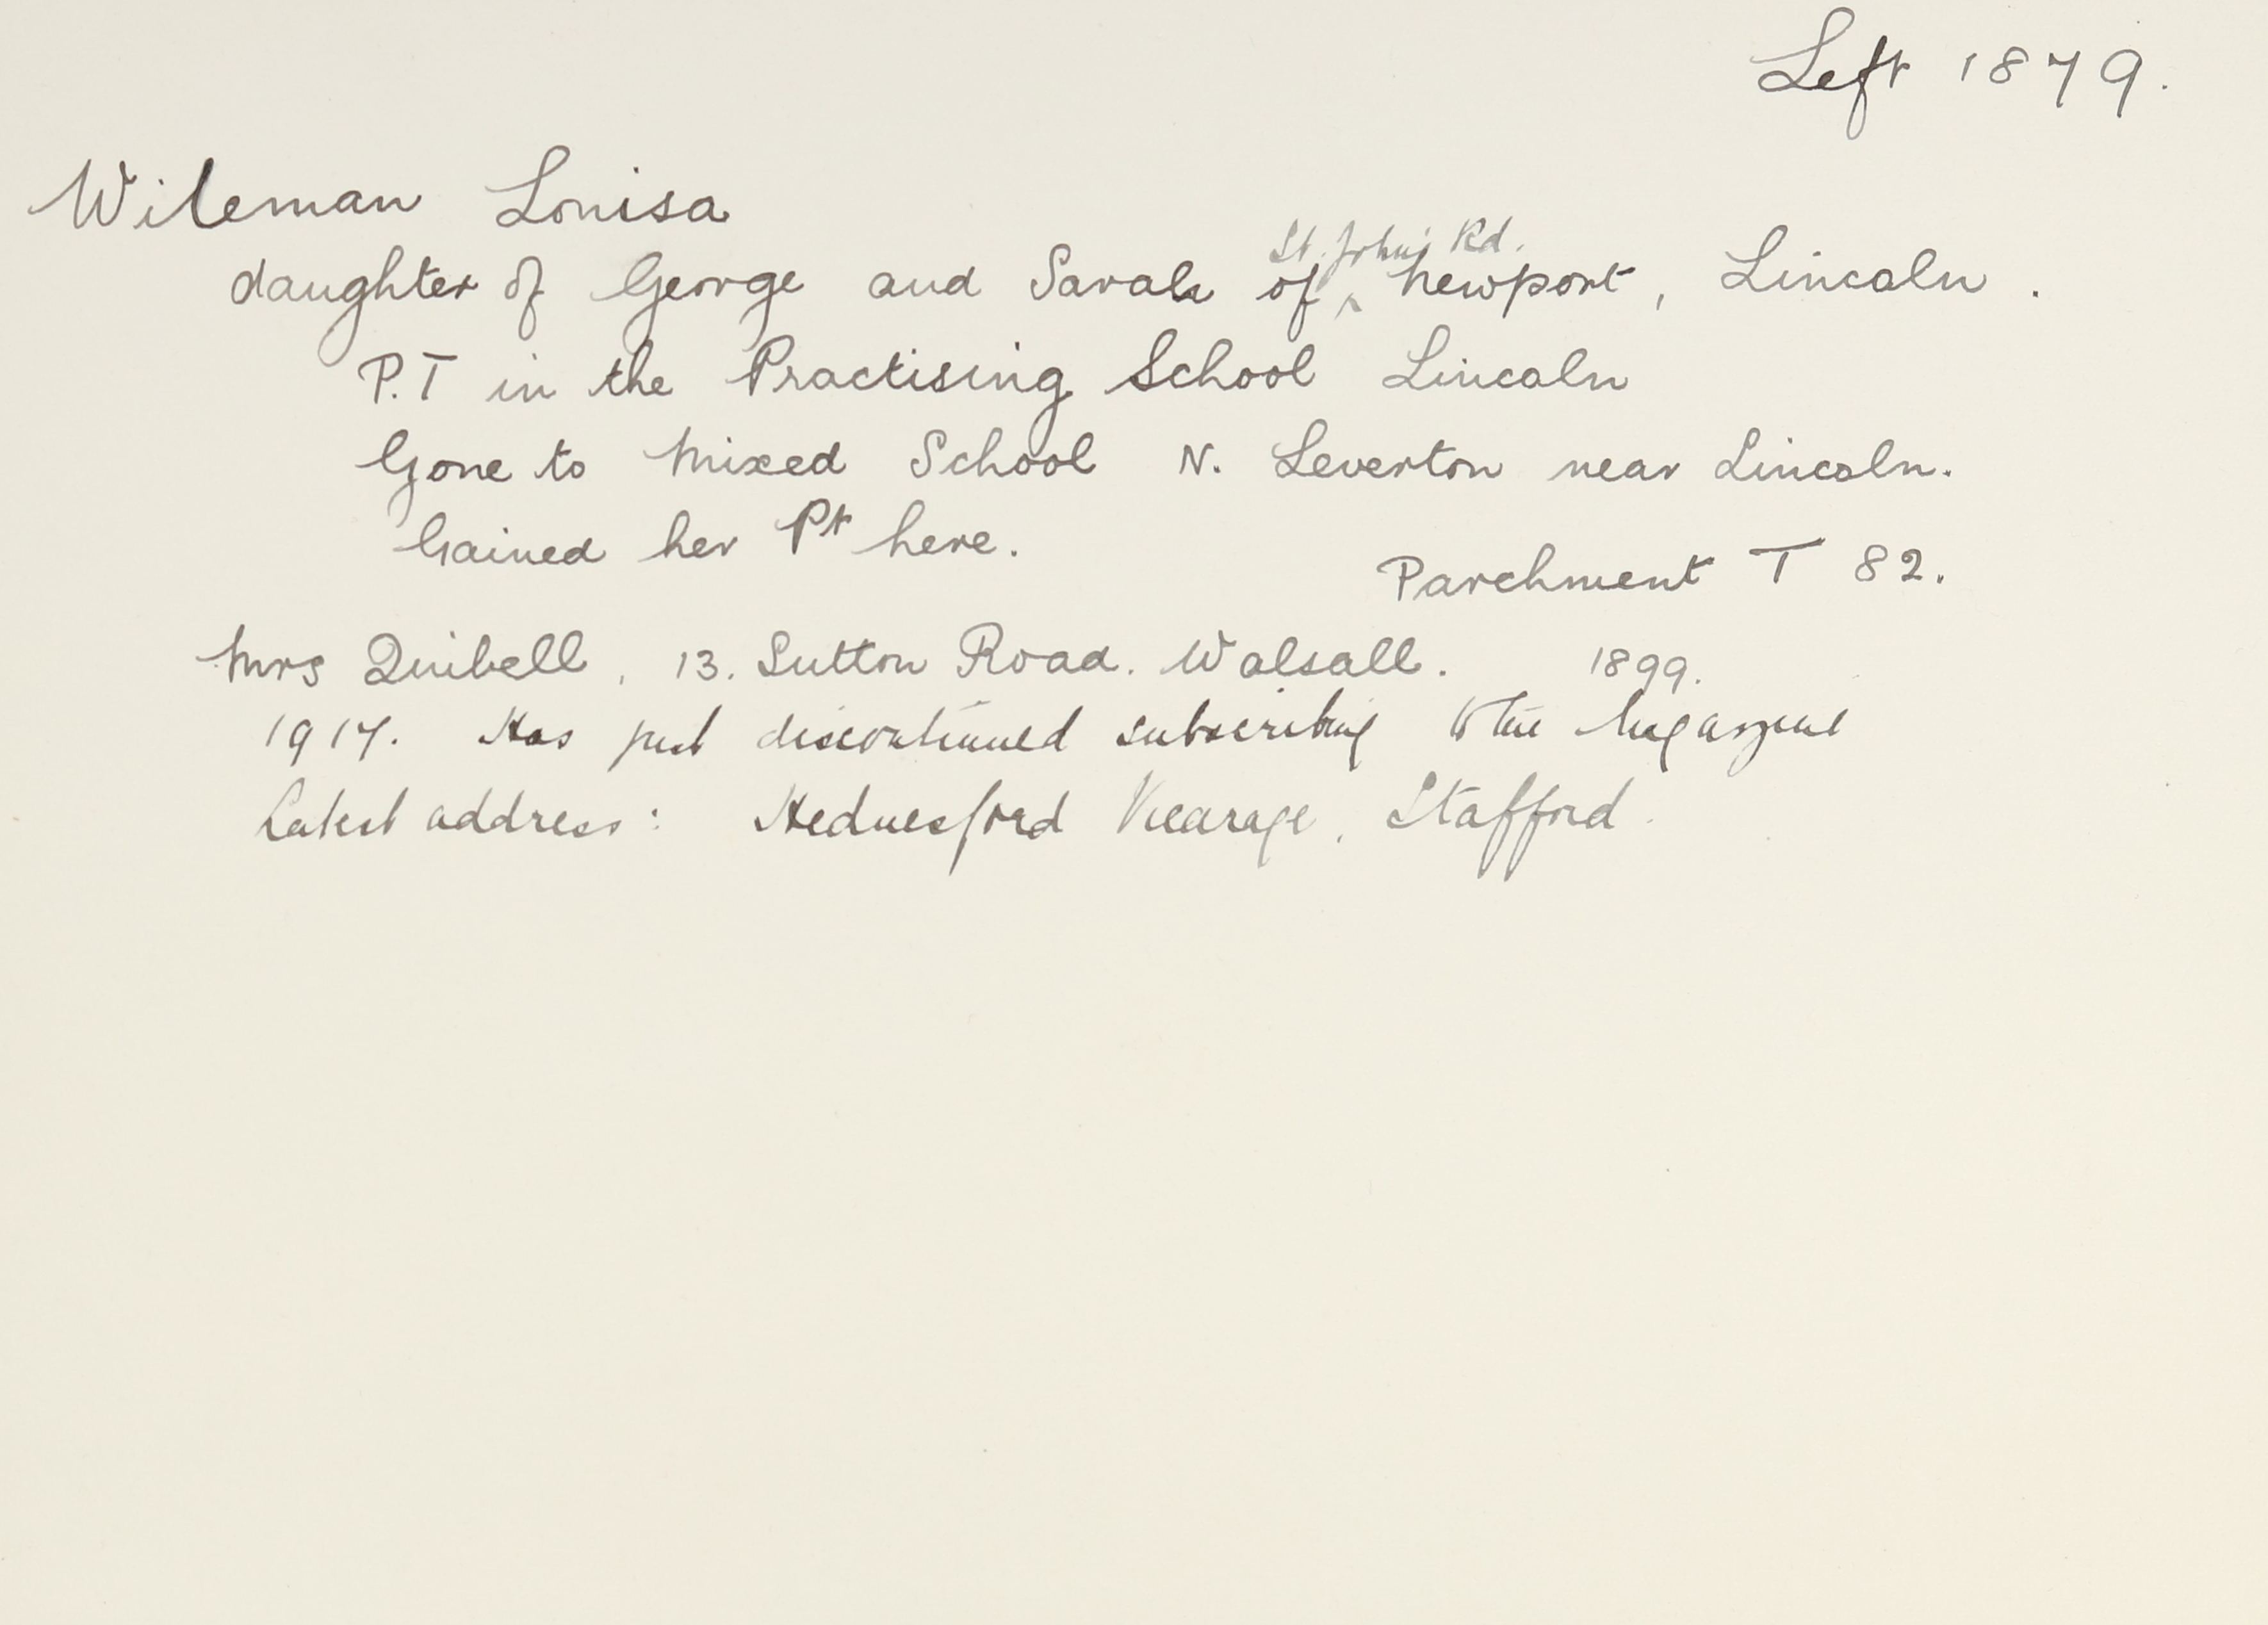 Left 1879.
Wileman Louisa
St. John's Rd.
daughter of George and Sarah of ^ Newport, Lincoln.
P.T in the Practising School Lincoln
Gone to Mixed School N. Leverton near Lincoln.
Gained her Pt here.
Parchment T 82.
Mrs Quibell, 13. Sutton Road. Walsall. 1899.
1917. Has just discontinued subscribing to the Magazine
Latest address: Hednesford Vicarage, Stafford.